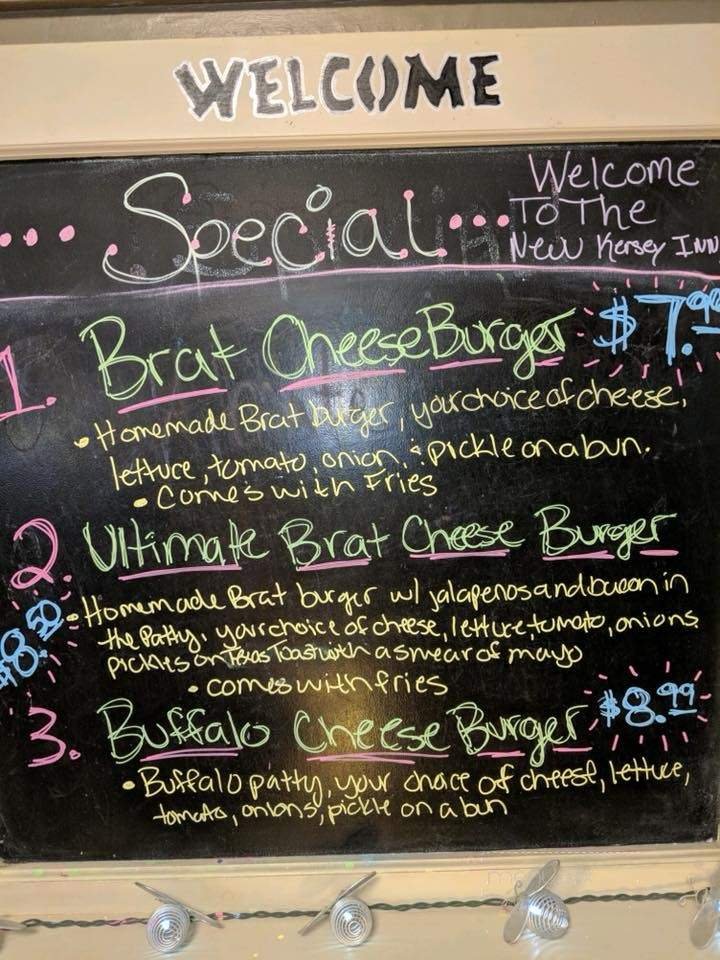 WELCOME
... Special...
Welcome
To The
New Kersey Inn
1. Brat Cheese Burger $7.99
• Homemade Brat burger, your choice of cheese,
lettuce, tomato, onion, & pickle on a bun.
• Comes with Fries
2. Ultimate Brat Cheese Burger
$8.50
• Homemade Brat burger w/ jalapenos and bacon in
the Patty, your choice of cheese, lettuce, tomato, onions
pickles on Texas Toast with a smear of mayo
• comes with fries
3. Buffalo Cheese Burger $8.99
• Buffalo patty, your choice of cheese, lettuce,
tomato, onions, pickle on a bun